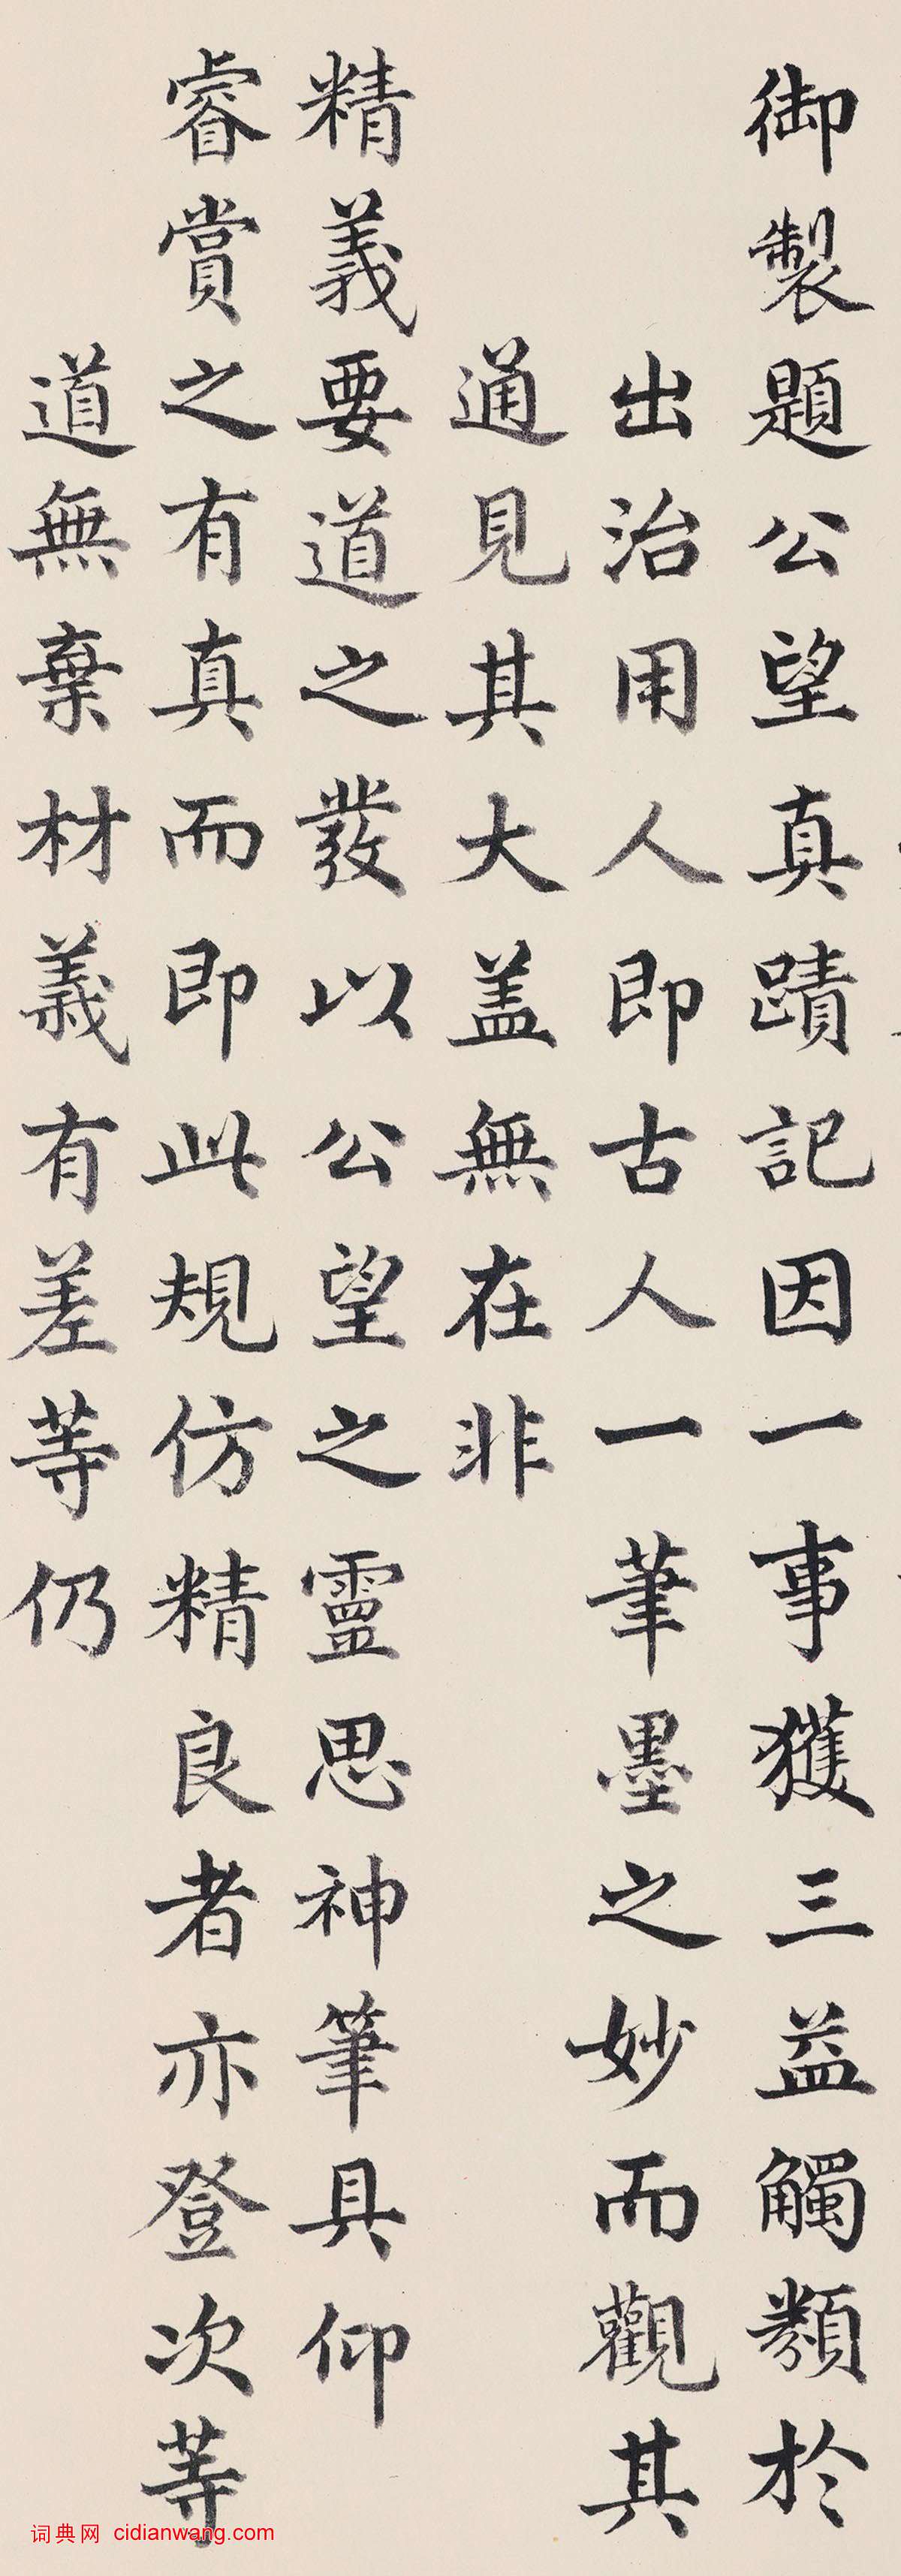 御製題公望真蹟記因一事獲三益觸類於
出治用人即古人一筆墨之妙而觀其
通見其大蓋無在非
精義要道之發以公望之靈思神筆具仰
睿賞之有真而即此規仿精良者亦登次等
道無棄材義有差等仍
词典网 cidianwang.com